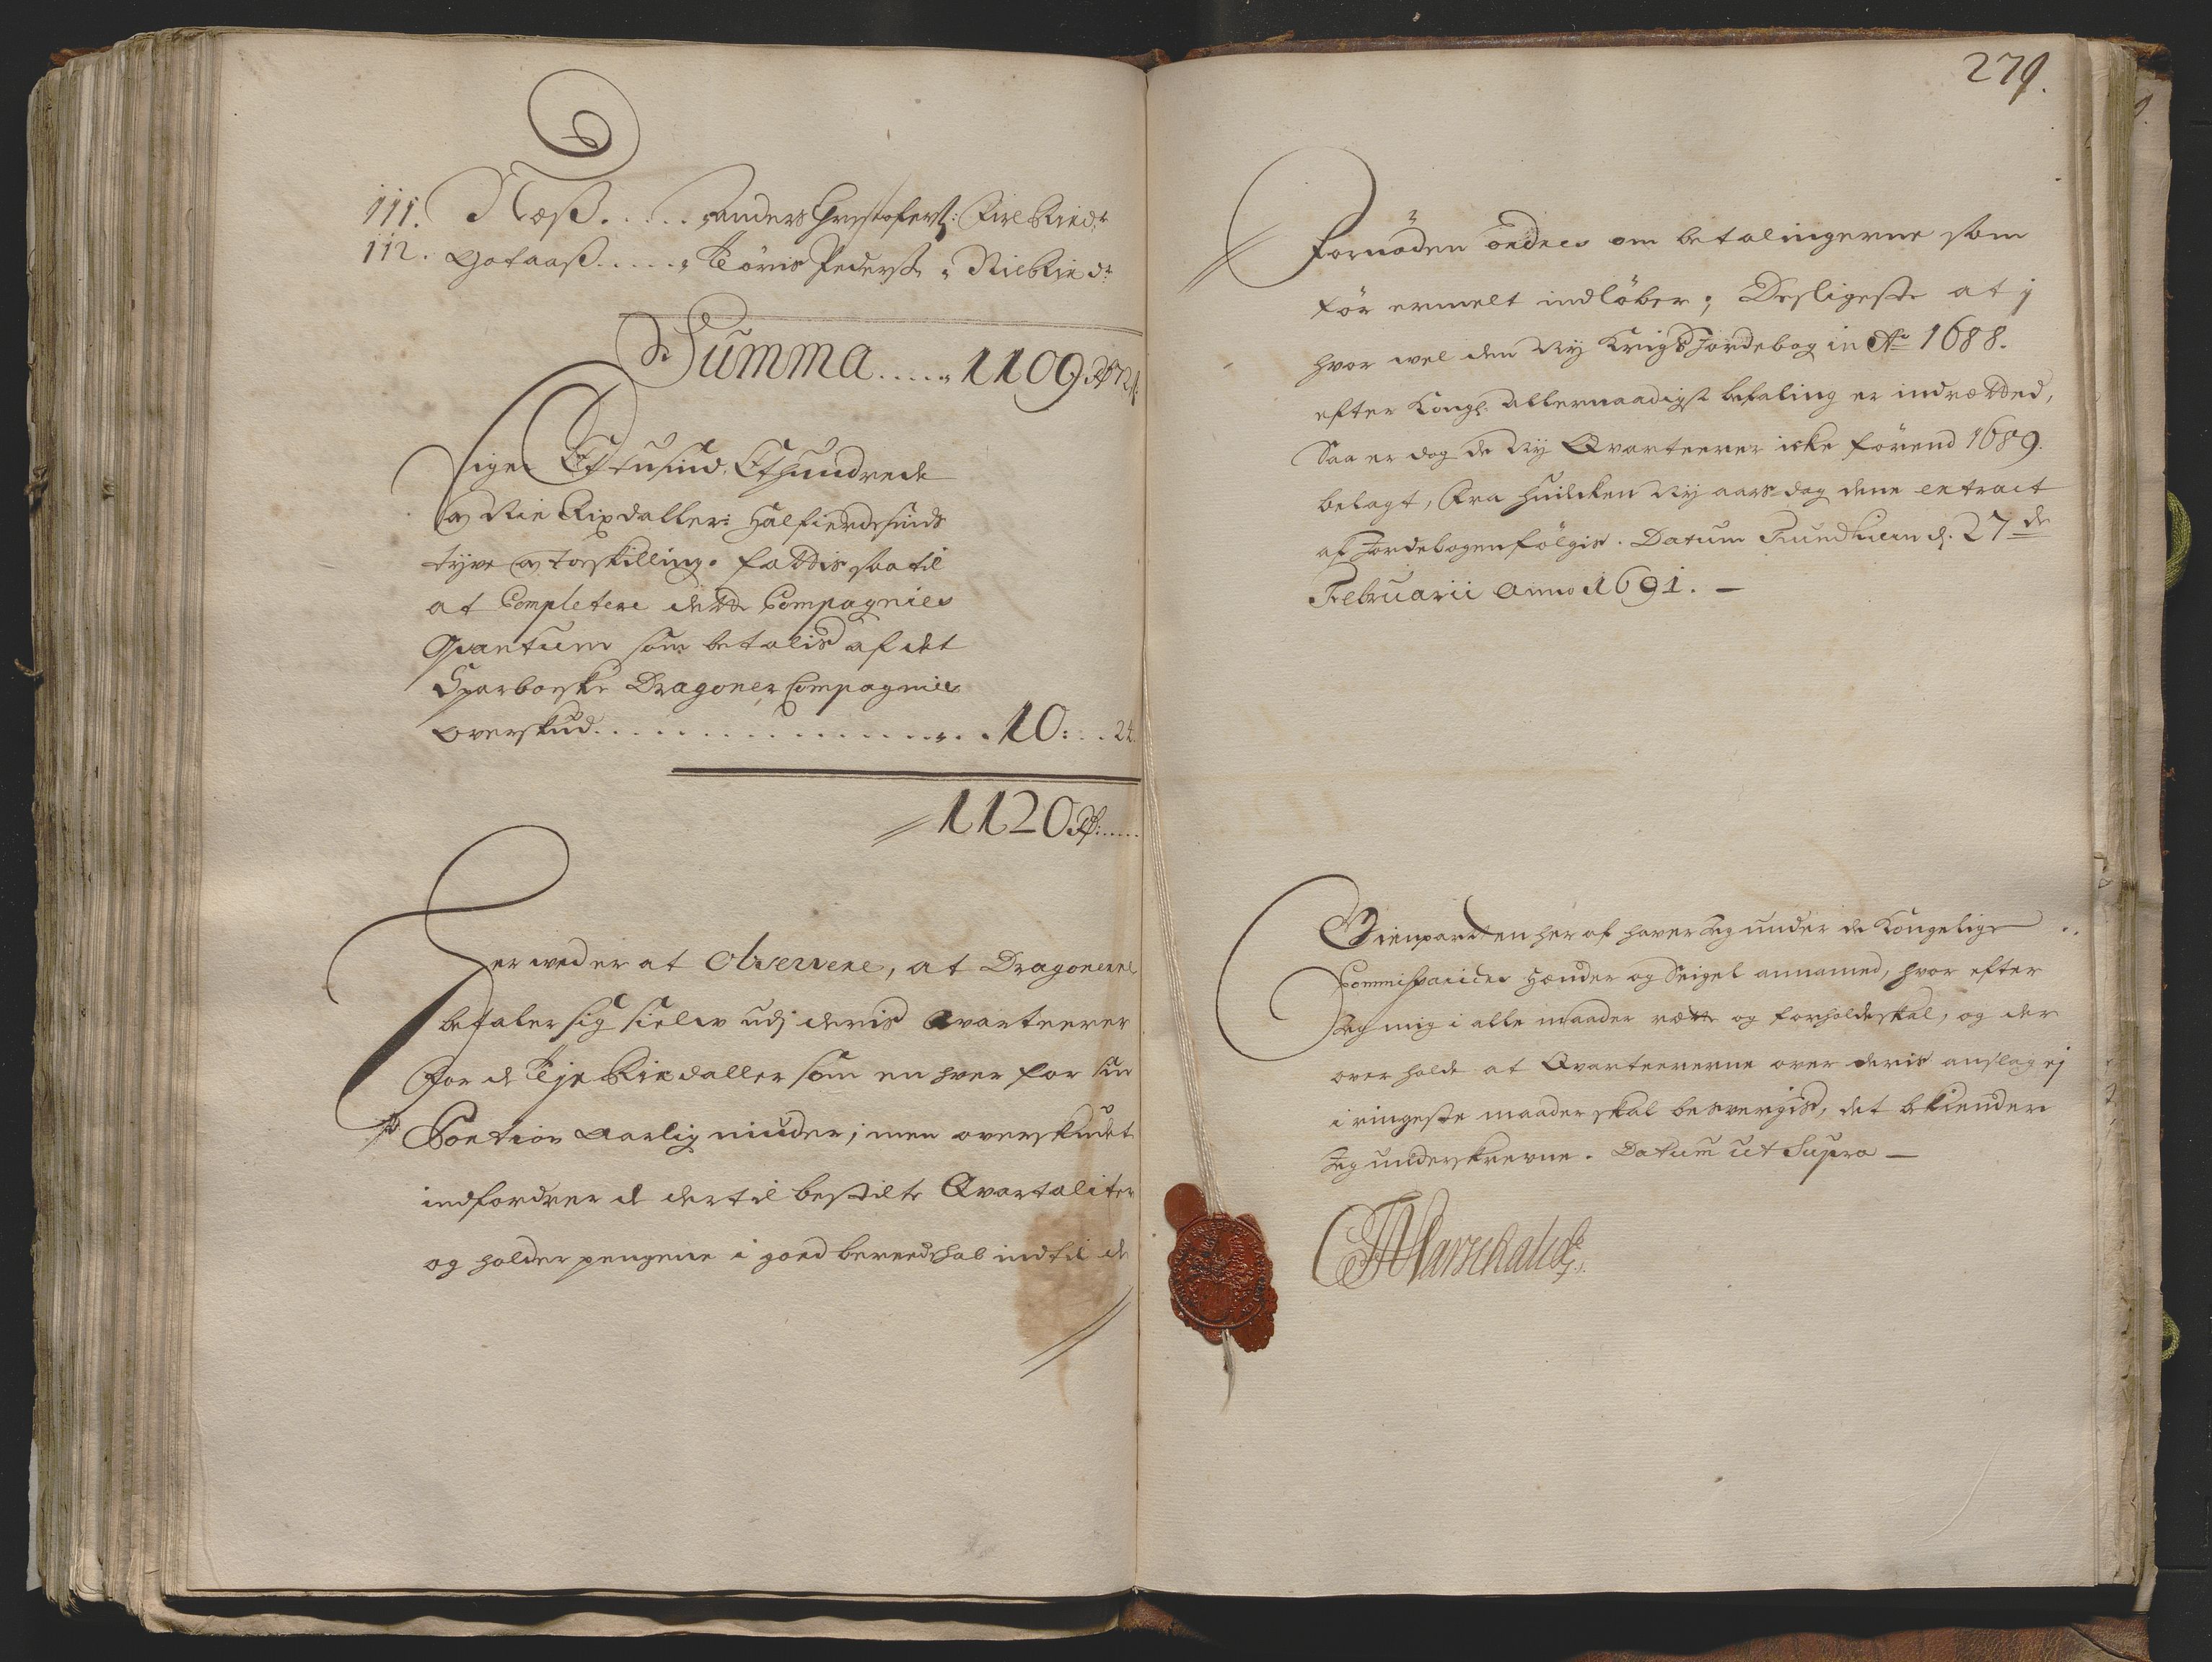 111. Næss..... Anders Christofers: Fire Rixdr
112. Gotaass..... Töris Peders: Nie Rixdr
Summa..... 1109 Rd 72 s:
Siger Et tusind, Ethundrede
og Nie Rixdaller: Halfierdesinds
tyve og toe skilling. fattis saa til
at Completere dette Compagnies
Quantum som betalis af det
Sparboeske Dragoner Compagnies
overskud.................. 10:.. 24.
1120 Rd:.....
Her ved er at Observere, at Dragonerne
betaler sig sielv udj deris Qvarteerer
for de Tije Rixdaller som en hver for sin
Portion aarlig niuder; men overskudet
indfordrer de dertil bestilte Qvartaliter
og holder pengene i goed beredschab indtil de
279.
fornöden ordres om betalingerne som
för ermelt indlöber; Desligeste at j
hvor vel den Ny Krigs Jordebog in Ao 1688.
efter Kongl: allernaadigst befaling er indrætted,
Saa er dog de Ny Qvarteerer icke förend 1689.
belagt, fra huilcken Ny aars dag dene extract
af Jordebogen fölgis. Datum Trundhiem d. 27de
Februarii Anno 1691. –
Gienparten her af haver Jeg under de Kongelige
Commissariers Hænder og Seigel annamed, hvor efter
Jeg mig i alle maader rætte og forholde skal, og der
over holde at Qvarteererne over deris anslag ej
i ringeste maader skal besvergis, det bekiender
Jeg underskrevne. Datum ut Supra –
Marschalck